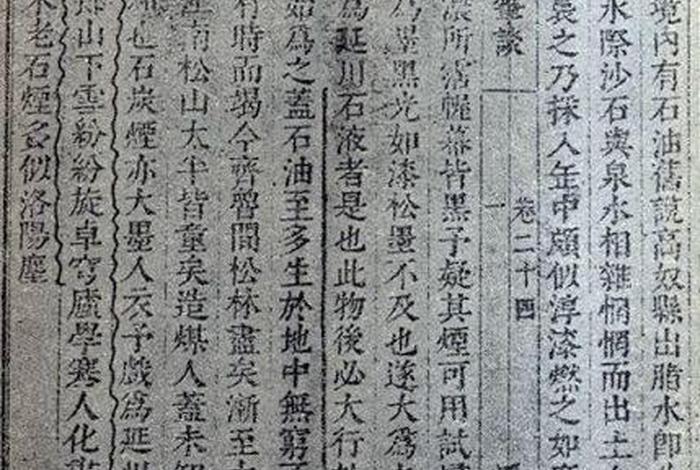 境內有石油舊說高奴縣出脂水卽
水際沙石與泉水相雜惘惘而出土
裛之乃採入缶中頗似淳漆燃之如
筆談 卷二十四 一
濃所霑幄幕皆黑予疑其煙可用試
爲墨黑光如漆松墨不及也遂大爲
爲延川石液者是也此物後必大行
如爲之蓋石油至多生於地中無窮
有時而竭今齊魯間松林盡矣漸至
江南松山太半皆童矣造煤人蓋未知
也石炭煙亦大墨人衣予戲爲延
山下雪紛紛旋卓穹廬學塞人化
不老石煙多似洛陽塵